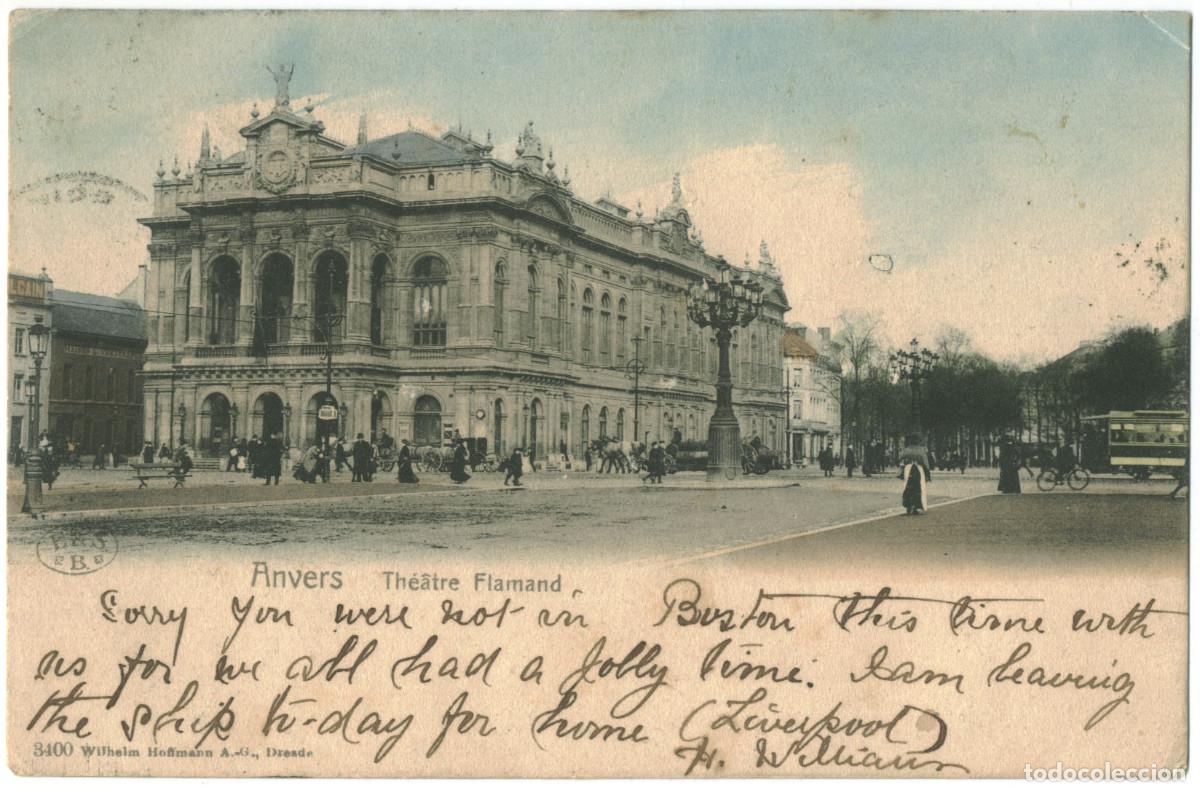 Anvers Théâtre Flamand
Sorry you were not in Boston this time with
us for we all had a Jolly time. I am leaving
the ship to-day for home (Liverpool)
H. Williams
3400 Wilhelm Hoffmann A.-G., Dresde
todocoleccion